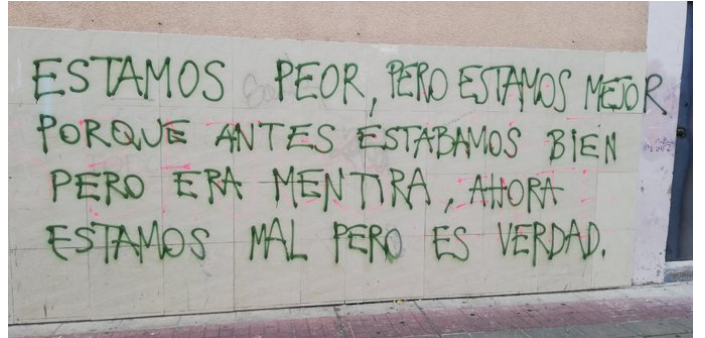 ESTAMOS PEOR, PERO ESTAMOS MEJOR
PORQUE ANTES ESTABAMOS BIEN
PERO ERA MENTIRA, AHORA
ESTAMOS MAL PERO ES VERDAD.